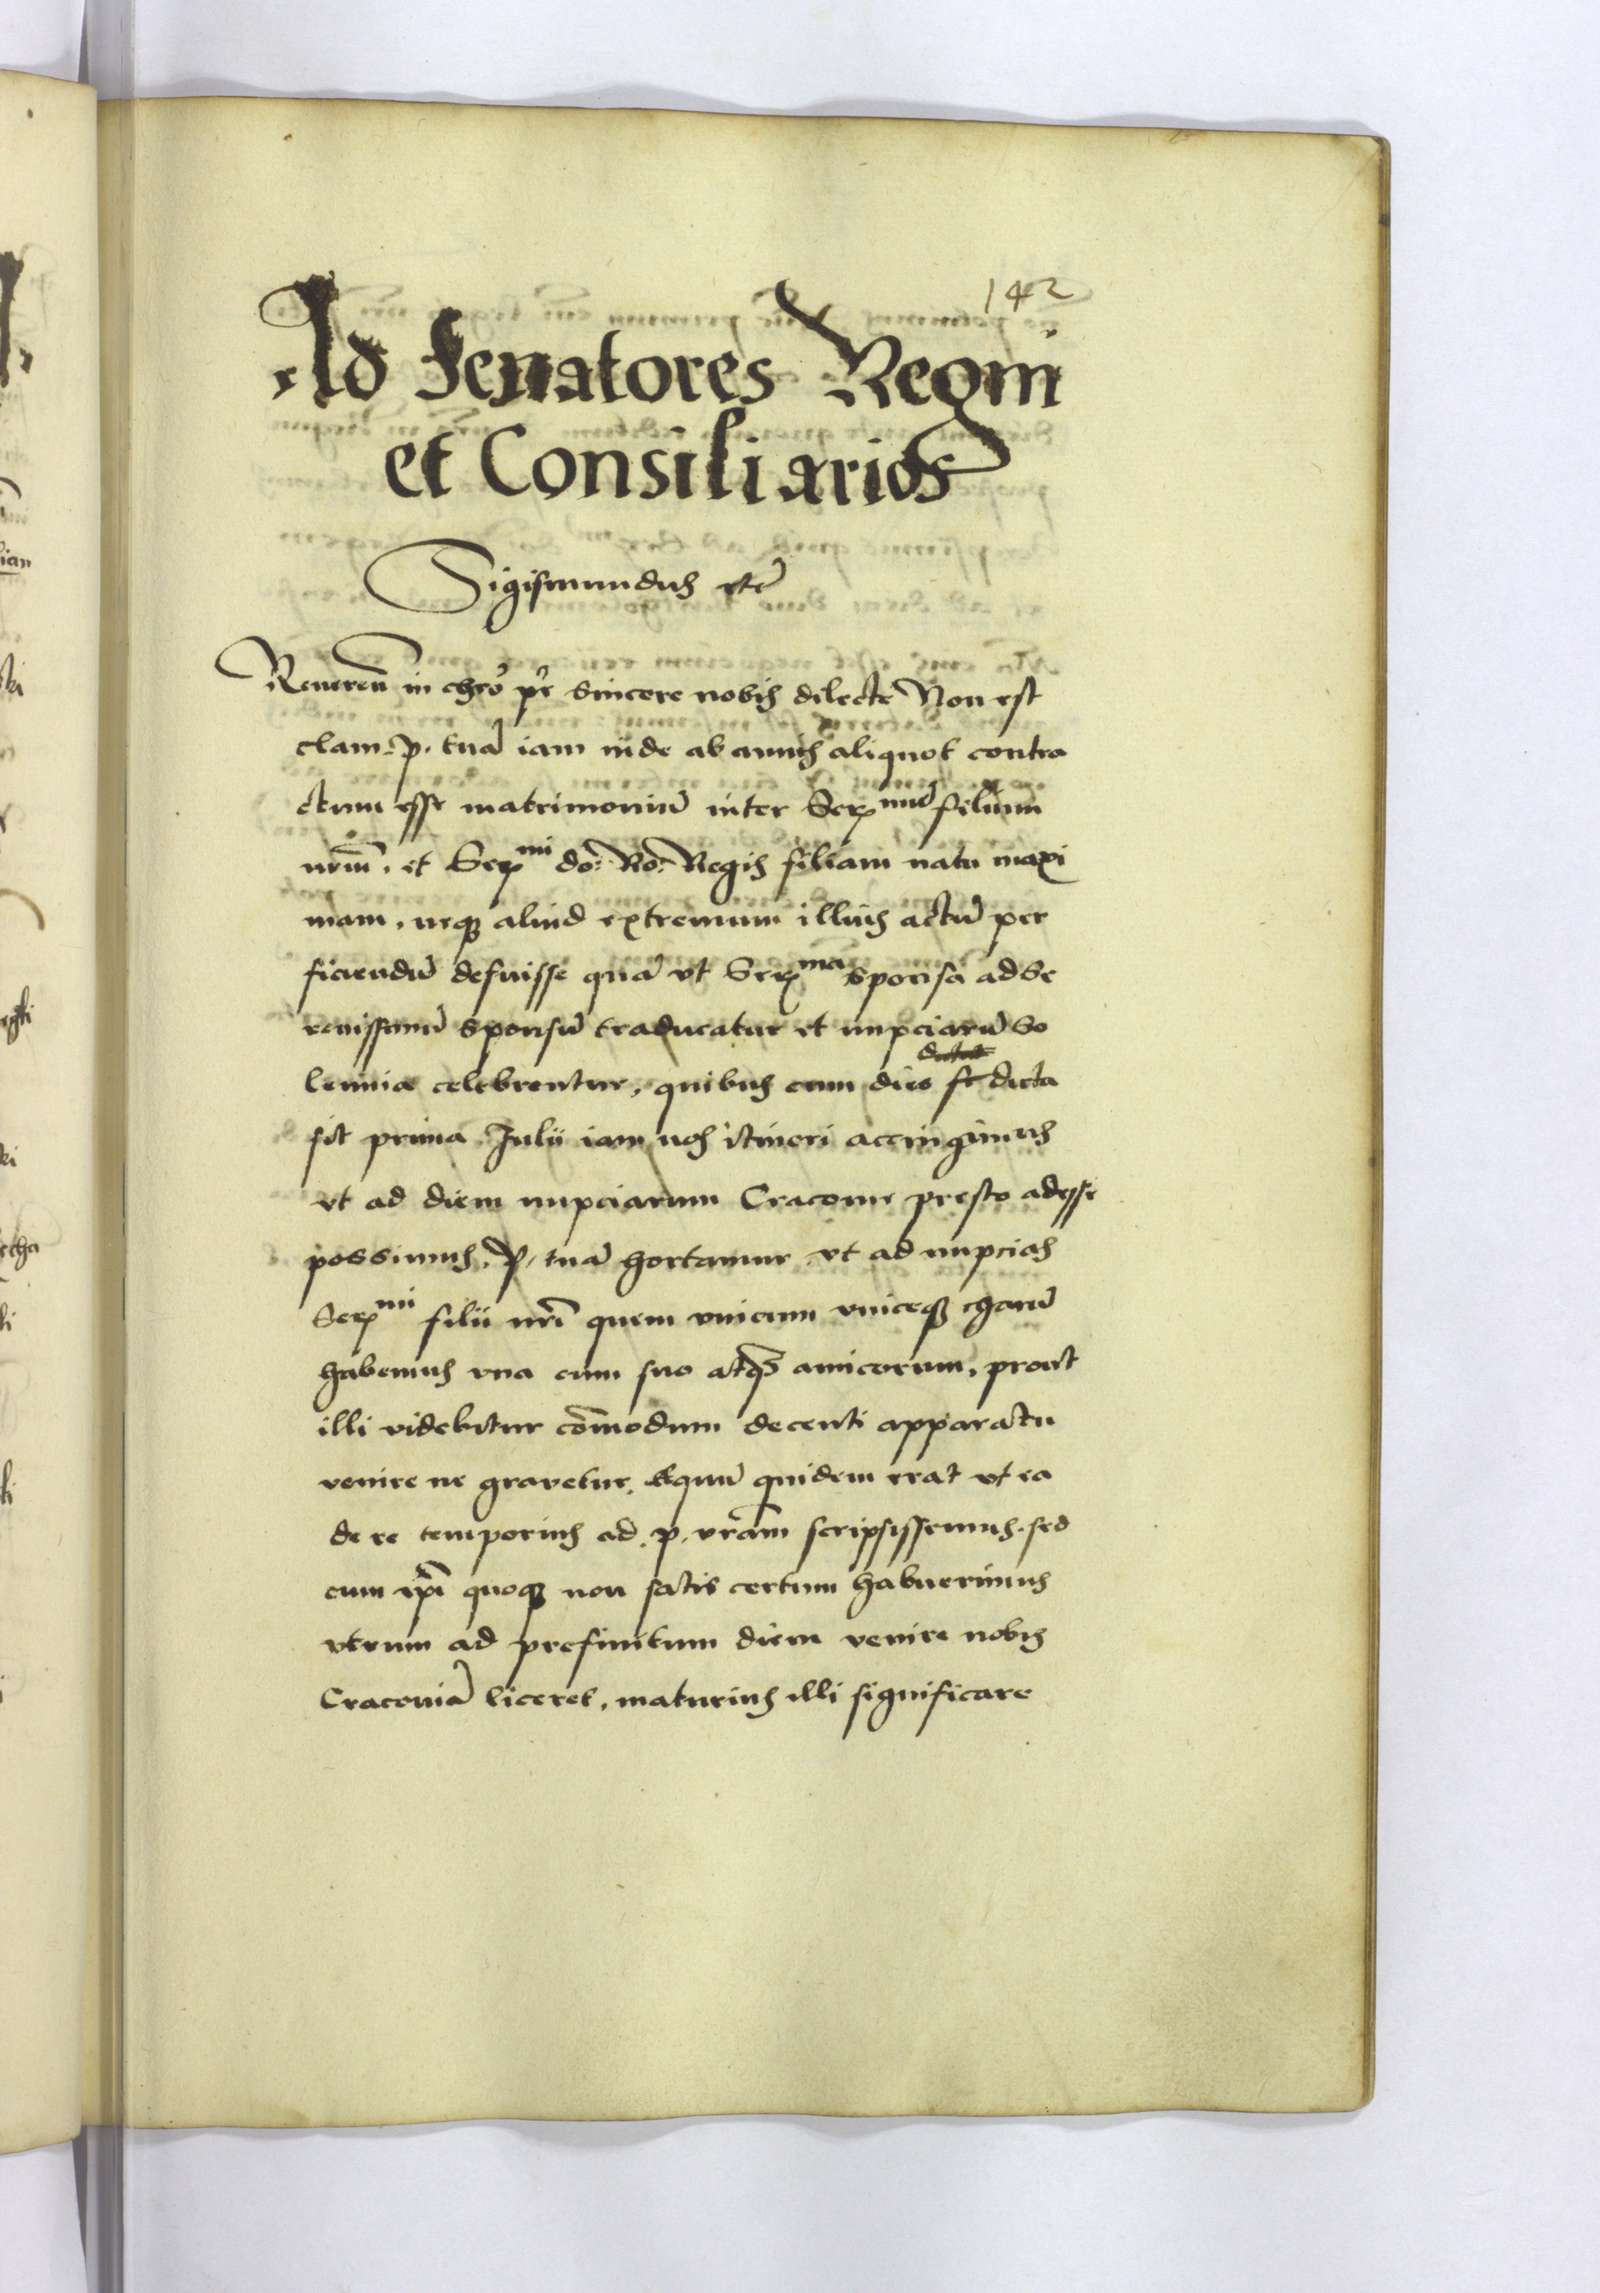 142
Ad Senatores Regni
et Consiliarios
Sigismundus etc̃
Reueren̄ in chrō pr̄ sincere nobis dilecte Non est
clam. p. tuā iam inde ab annis aliquot contra
ctum esse matrimoniū inter Serᵐᵘᵐ filium
nrūm. et Serᵐⁱ do: Ro: Regis filiam natu maxi
mam, neqꝫ aliud extremum illius actū per
ficiendū defuisse quā vt Serᵐᵃ sponsa ad Se
renissimū sponsū traducatur et nupciarū so
lennia celebrentur, quibus cum dies dicta
sit prima Julii iam nos itineri accingimus
vt ad diem nupciarum Cracouie presto adesse
possimus. P. tuā hortamur vt ad nupcias
Serᵐⁱ filii nr̄i quem vnicum vniceqꝫ charū
habemus vna cum suo atqꝫ amicorum, prout
illi videbitur cōmodum decenti apparatu
venire ne grauetur. Equū quidem erat vt ea
de re temporius ad. p. vr̄am scripsissemus. sed
cum ip̄i quoqꝫ non satis certum habuerimus
vtrum ad prefinitum diem venire nobis
Cracouiā liceret, maturius illi significare